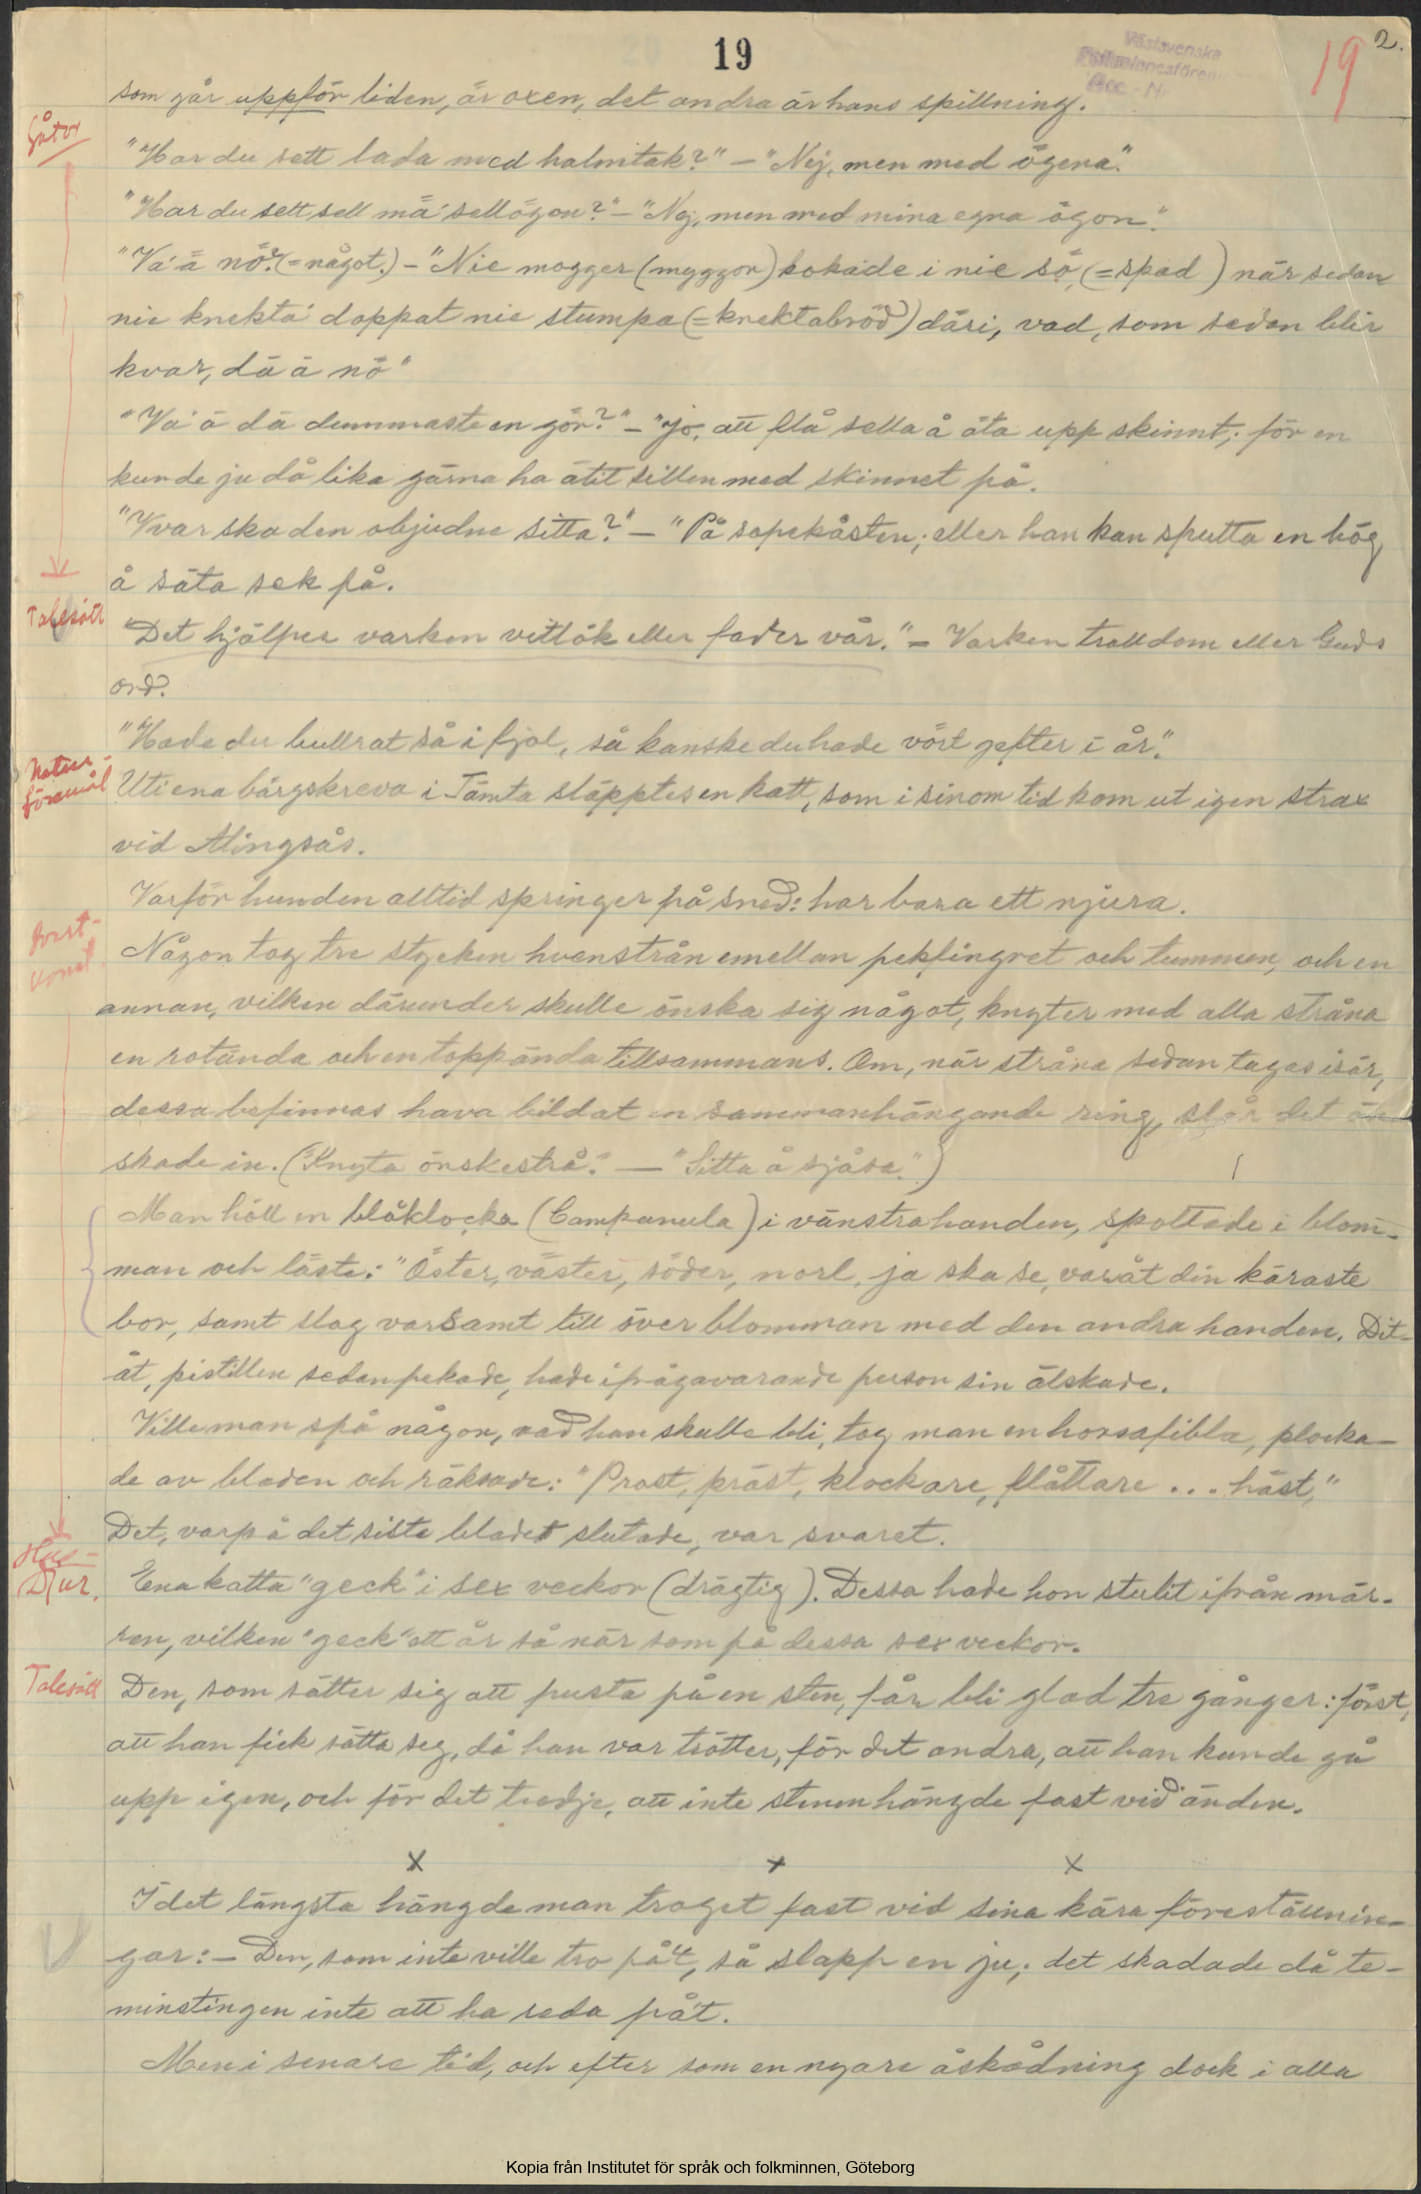 19
2.
19
Västsvenska
Folkminnesfören
Acc. N
som går uppför liden, är oxen, det andra är hans spillning.
Gåtor
"Har du sett lada med halmtak?" – "Nej, men med ögena."
"Har du sett sell mä sellögon?" – "Nej, men med mina egna ögon."
"Va' ä nö?" (= något.) – "Nie mogger (myggor) kokade i nie sö, (= spad) när sedan
nie knekta doppat nie stumpa (= knektabröd) däri, vad, som sedan blir
kvar, dä ä nö"
"Va' ä dä dummaste en gör?" – "Jo, att flå sella å äta upp skinnt; för en
kunde ju då lika gärna ha ätit sillen med skinnet på.
"Vvar ska den objudne sitta?" – "På sopekåsten; eller han kan sputta en hög
å säta sek på.
Talesätt
"Det hjälper varken vitlök eller fader vår." = Varken trolldom eller Guds
ord.
"Hade du bullrat så i fjol, så kanske du hade vört gefter i år."
Natur-
föremål
Uti ena bärgskreva i Tämta släpptes en katt, som i sinom tid kom ut igen strax
vid Alingsås.
Varför hunden alltid springer på sned: har bara ett njura.
Någon tog tre stycken hvenstrån emellan pekfingret och tummen, och en
annan, vilken därunder skulle önska sig något, knyter med alla stråna
en rotända och en toppända tillsammans. Om, när stråna sedan tagas isär,
dessa befinnas hava bildat en sammanhängande ring, slår det ön
skade in. ("Knyta önskestrå." — "Sitta å sjåsa.")
Man höll en blåklocka (Campanula) i vänstra handen, spottade i blom-
man och läste: "Öster, väster, söder, norl, ja ska se, varåt din käraste
bor, samt slog varsamt till över blomman med den andra handen. Dit-
åt, pistillen sedan pekade, hade ifrågavarande person sin älskade.
Ville man spå någon, vad han skulle bli, tog man en horsafibla, plocka-
de av bladen och räknade: "Prost, präst, klockare, flåttare ... häst,"
Det, varpå det sista bladet slutade, var svaret.
Hus-
Djur.
Ena katta "geck" i sex veckor (drägtig). Dessa hade hon stulit ifrån mär-
ren, vilken "geck" ett år så när som på dessa sex veckor.
Talesätt
Den, som sätter sig att pusta på en sten, får bli glad tre gånger: först,
att han fick sätta seg, då han var trötter, för det andra, att han kunde gå
upp igen, och för det tredje, att inte stenen hängde fast vid änden.
x x x
I det längsta hängde man troget fast vid sina kära föreställnin-
gar: – Den, som inte ville tro på't, så slapp en ju; det skadade då te-
minstingen inte att ha reda på't.
Men i senare tid, och efter som en nyare åskådning dock i alla
Kopia från Institutet för språk och folkminnen, Göteborg